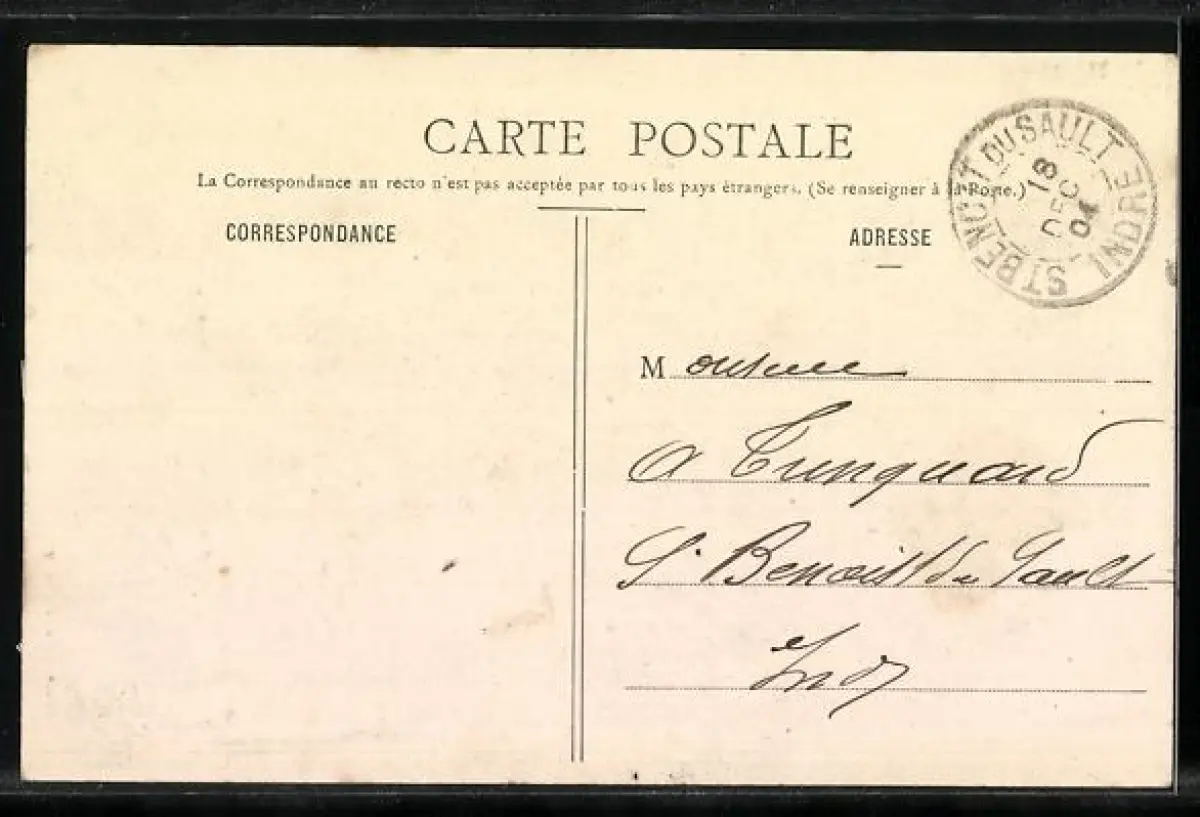 CARTE POSTALE
La Correspondance au recto n'est pas acceptée par tous les pays étrangers. (Se renseigner à la Poste.)
CORRESPONDANCE
ADRESSE
ST BENOIT DU SAULT
18
DEC
04
INDRE
Monsieur
A
St Benoist du Sault
Ind